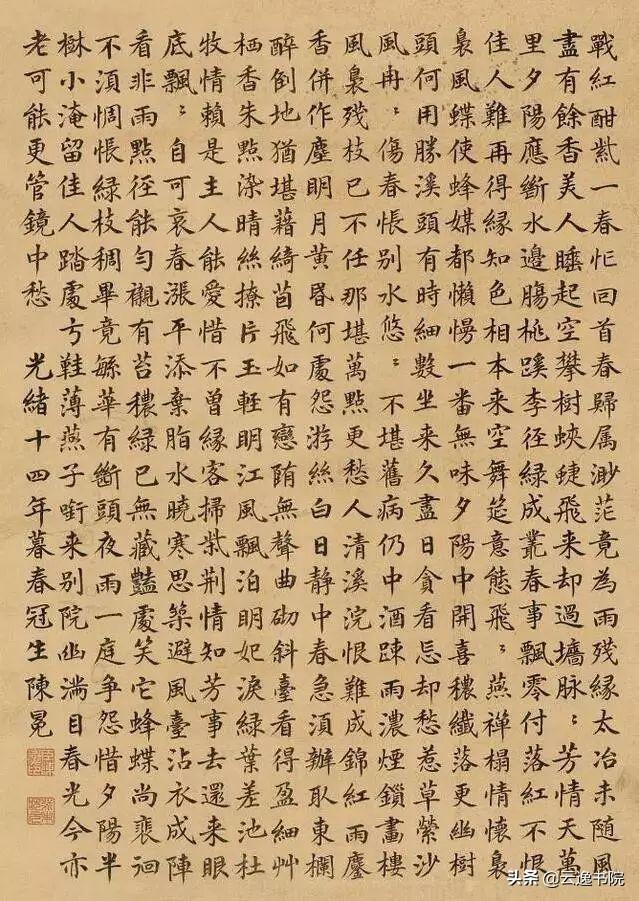 戰紅酣紫一春忙回首春歸属渺茫竟為雨殘緣太冶未随風
盡有餘香美人睡起空攀樹蛺蜨飛来却過墻脉〻芳情天萬
里夕陽應斷水邊腸桃蹊李徑緑成叢春事飄零付落紅不恨
佳人難再得緣知色相本来空舞筵意態飛〻燕禪榻情懷裊
裊風蝶使蜂媒都懶慢一番無味夕陽中開喜穠纖落更幽樹
頭何用勝溪頭有時細數坐来久盡日貪看忘却愁惹草縈沙
風冉〻傷春悵別水悠〻不堪舊病仍中酒踈雨濃煙鎖畫樓
風裊殘枝已不任那堪萬點更愁人清溪浣恨難成錦紅雨塵
香併作塵明月黄昏何處怨游絲白日静中春急湏辦取東欄
醉倒地猶堪藉綺茵飛如有戀陏無聲曲砌斜臺看得盈細艸
栖香朱點染晴絲撩片玉輕明江風飄泊明妃淚緑葉差池杜
牧情賴是主人能愛惜不曾緣客掃紫荆情知芳事去還来眼
底飄〻自可哀春漲平添棄脂水曉寒思築避風臺沾衣成陣
看非雨點徑能勻襯有苔穠緑已無藏豔處笑它蜂蝶尚裵徊
不湏惆悵緑枝稠畢竟緐華有斷頭夜雨一庭争怨惜夕陽半
樹小淹留佳人踏處弓鞋薄燕子啣来別院幽滿目春光今亦
老可能更管鏡中愁 光緒十四年暮春冠生陳冕
头条@云逸书院